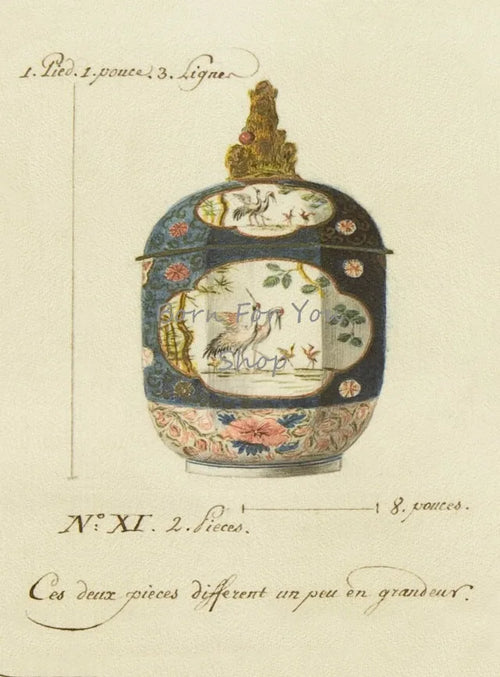 1. Pied. 1. pouce. 3. Lignes
Born For You
Shop
8. pouces.
N.º XI. 2. Pieces.
Ces deux pieces different un peu en grandeur.